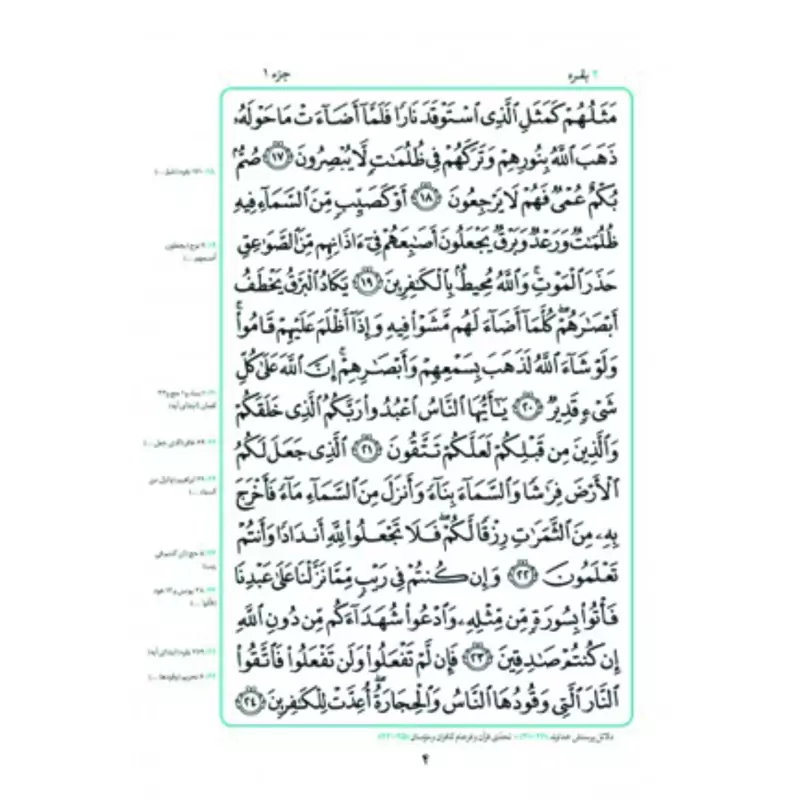 ۲ بقره
جزء ۱
مَثَلُهُمْ كَمَثَلِ ٱلَّذِى ٱسْتَوْقَدَ نَارًا فَلَمَّآ أَضَآءَتْ مَا حَوْلَهُۥ
ذَهَبَ ٱللَّهُ بِنُورِهِمْ وَتَرَكَهُمْ فِى ظُلُمَٰتٍ لَّا يُبْصِرُونَ ﴿١٧﴾ صُمٌّۢ
بُكْمٌ عُمْىٌ فَهُمْ لَا يَرْجِعُونَ ﴿١٨﴾ أَوْ كَصَيِّبٍ مِّنَ ٱلسَّمَآءِ فِيهِ
ظُلُمَٰتٌ وَرَعْدٌ وَبَرْقٌ يَجْعَلُونَ أَصَٰبِعَهُمْ فِىٓ ءَاذَانِهِم مِّنَ ٱلصَّوَٰعِقِ
حَذَرَ ٱلْمَوْتِ ۚ وَٱللَّهُ مُحِيطٌۢ بِٱلْكَٰفِرِينَ ﴿١٩﴾ يَكَادُ ٱلْبَرْقُ يَخْطَفُ
أَبْصَٰرَهُمْ ۖ كُلَّمَآ أَضَآءَ لَهُم مَّشَوْا۟ فِيهِ وَإِذَآ أَظْلَمَ عَلَيْهِمْ قَامُوا۟ ۚ
وَلَوْ شَآءَ ٱللَّهُ لَذَهَبَ بِسَمْعِهِمْ وَأَبْصَٰرِهِمْ ۚ إِنَّ ٱللَّهَ عَلَىٰ كُلِّ
شَىْءٍ قَدِيرٌ ﴿٢٠﴾ يَٰٓأَيُّهَا ٱلنَّاسُ ٱعْبُدُوا۟ رَبَّكُمُ ٱلَّذِى خَلَقَكُمْ
وَٱلَّذِينَ مِن قَبْلِكُمْ لَعَلَّكُمْ تَتَّقُونَ ﴿٢١﴾ ٱلَّذِى جَعَلَ لَكُمُ
ٱلْأَرْضَ فِرَٰشًا وَٱلسَّمَآءَ بِنَآءً وَأَنزَلَ مِنَ ٱلسَّمَآءِ مَآءً فَأَخْرَجَ
بِهِۦ مِنَ ٱلثَّمَرَٰتِ رِزْقًا لَّكُمْ ۖ فَلَا تَجْعَلُوا۟ لِلَّهِ أَندَادًا وَأَنتُمْ
تَعْلَمُونَ ﴿٢٢﴾ وَإِن كُنتُمْ فِى رَيْبٍ مِّمَّا نَزَّلْنَا عَلَىٰ عَبْدِنَا
فَأْتُوا۟ بِسُورَةٍ مِّن مِّثْلِهِۦ وَٱدْعُوا۟ شُهَدَآءَكُم مِّن دُونِ ٱللَّهِ
إِن كُنتُمْ صَٰدِقِينَ ﴿٢٣﴾ فَإِن لَّمْ تَفْعَلُوا۟ وَلَن تَفْعَلُوا۟ فَٱتَّقُوا۟
ٱلنَّارَ ٱلَّتِى وَقُودُهَا ٱلنَّاسُ وَٱلْحِجَارَةُ ۖ أُعِدَّتْ لِلْكَٰفِرِينَ ﴿٢٤﴾
۴